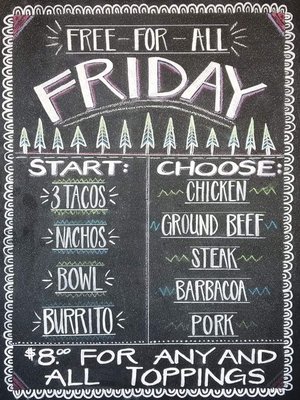 FREE-FOR-ALL
FRIDAY
START:
3 TACOS
NACHOS
BOWL
BURRITO
CHOOSE:
CHICKEN
GROUND BEEF
STEAK
BARBACOA
PORK
$8.00 FOR ANY AND
ALL TOPPINGS